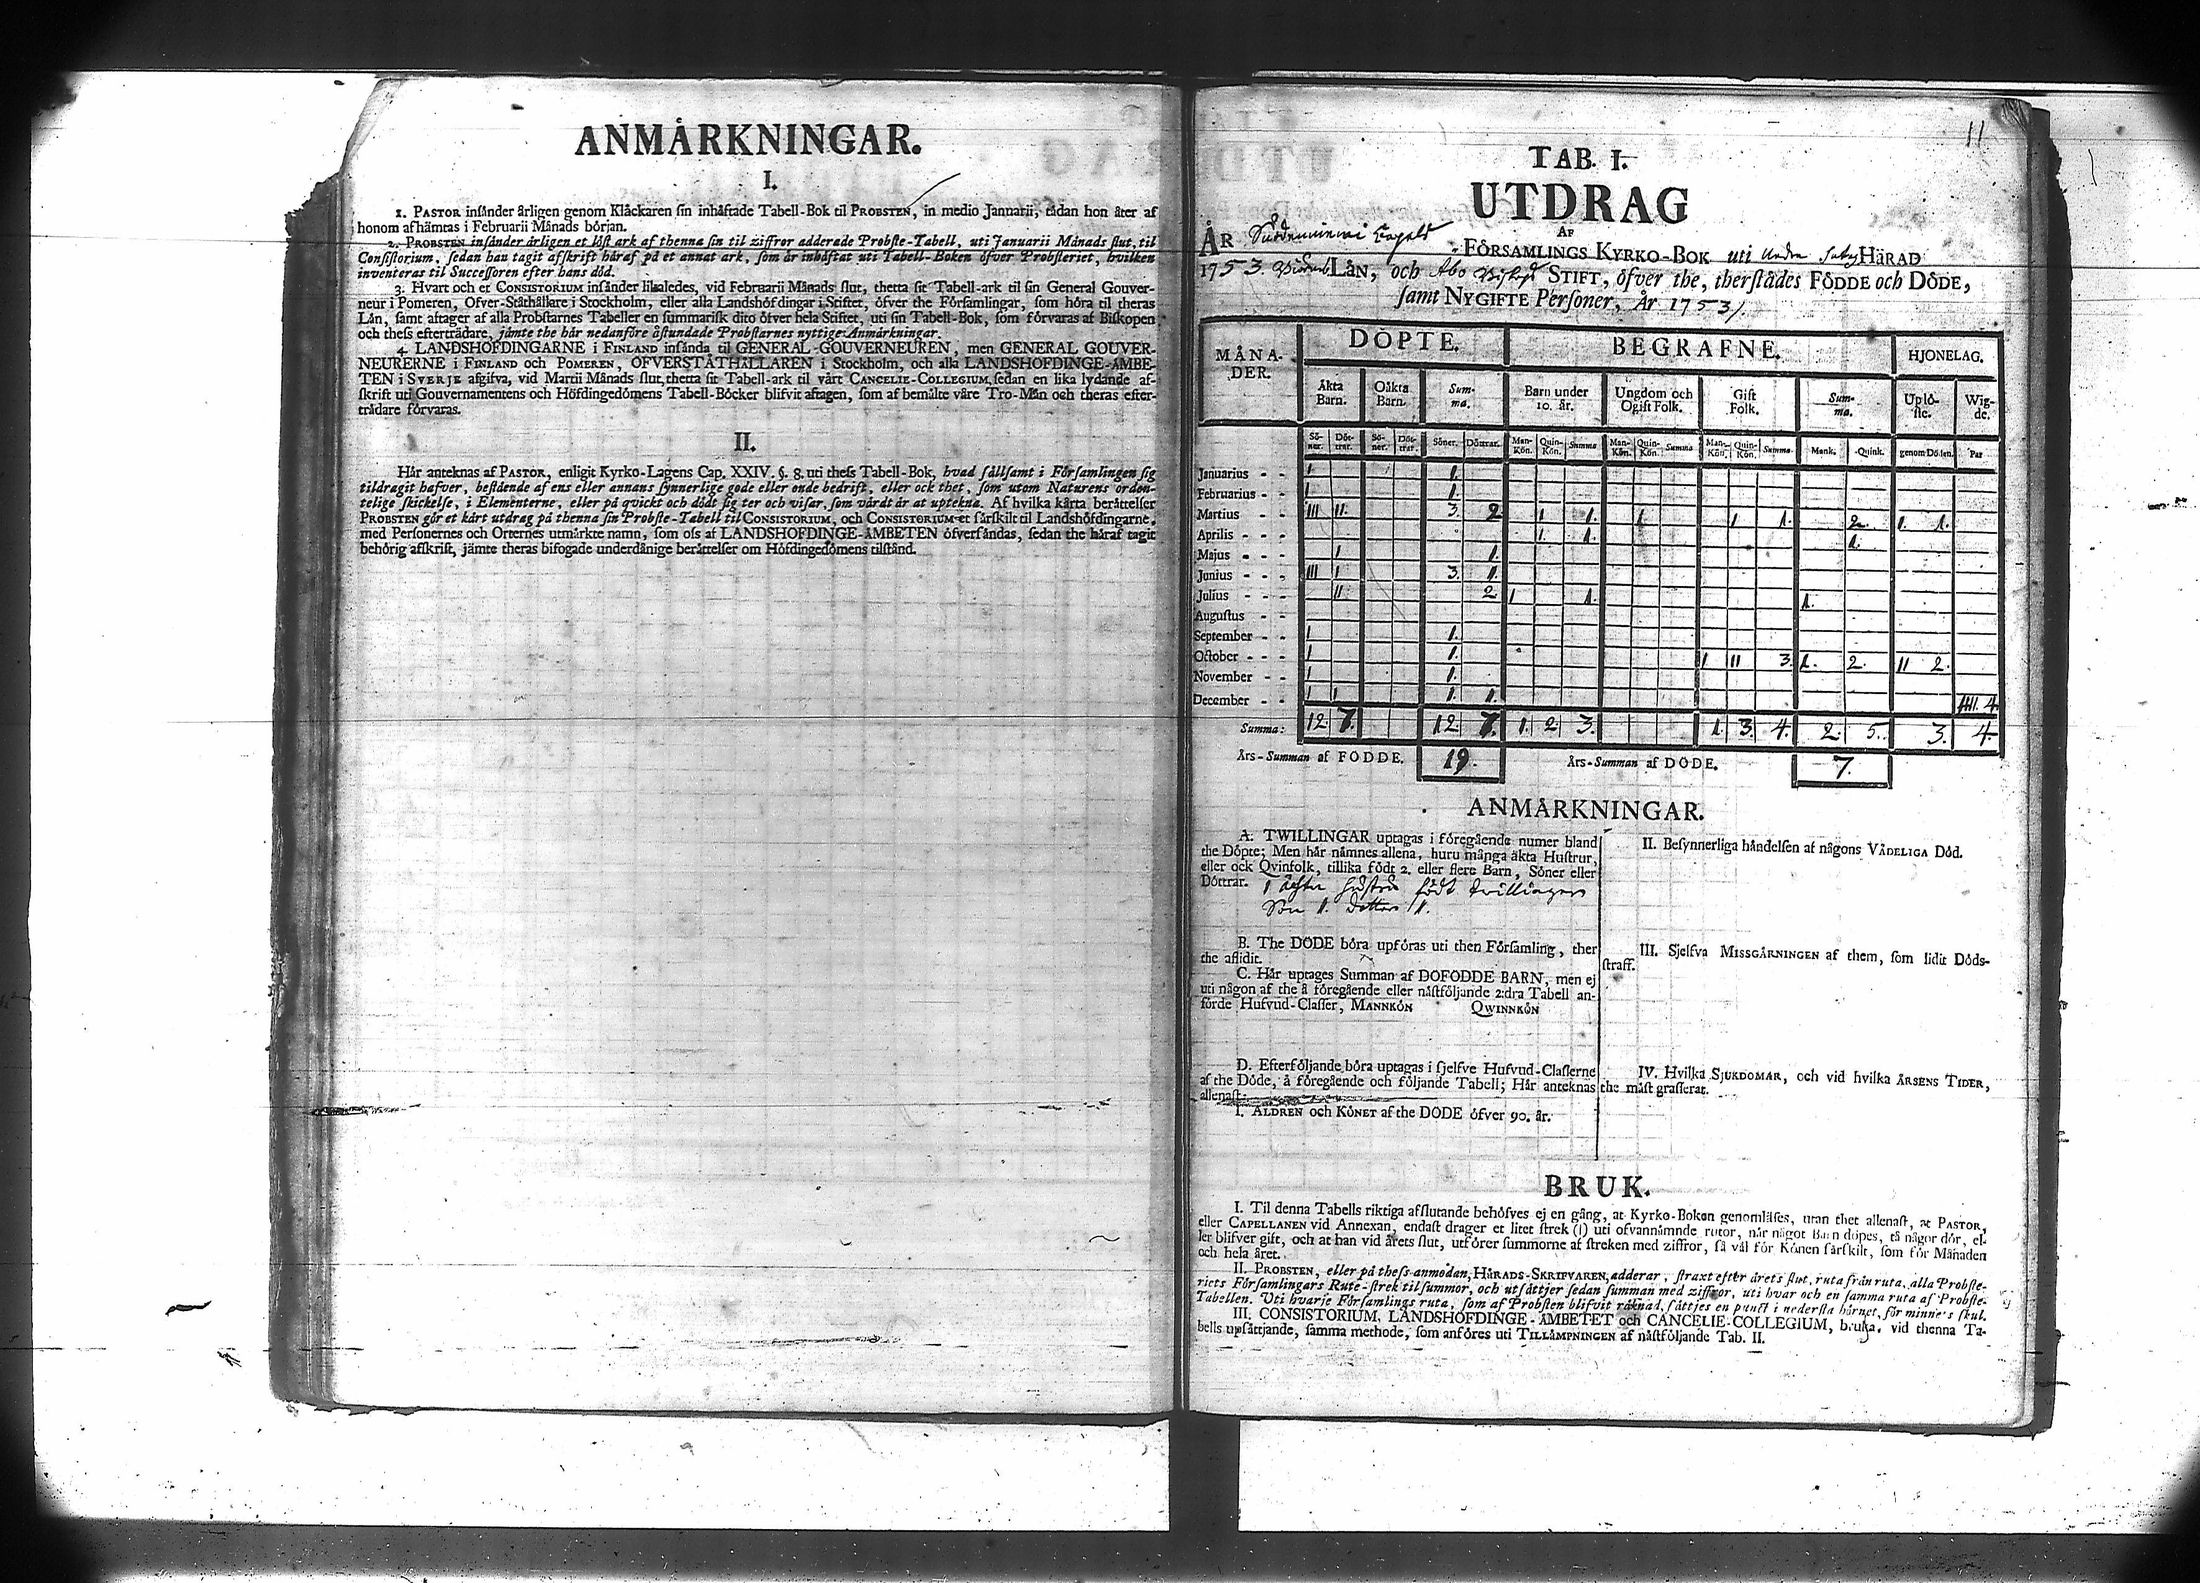 ANMÅRKNINGAR.
I.
1. PASTOR insånder årligen genom Klåckaren sin inhåftade Tabell-Bok til PROBSTEN, in medio Januarii, sådan hon åter af
honom afhåmtas i Februarii Månads bórjan.
2. PROBSTEN insånder årligen et lóst ark af thenna sin til ziffror adderade Probste-Tabell, uti Januarii Månads slut, til
Consistorium, sedan han tagit afskrift håraf på et annat ark, som år inhåftat uti Tabell-Boken ófver Probsteriet, hvilken
inventeras til Successoren efter hans dód.
3. Hvart och et CONSISTORIUM insånder likaledes, vid Februarii Månads slut, thetta sit Tabell-ark til sin General Gouver-
neur i Pomeren, Ófver-Ståthållare i Stockholm, eller alla Landshófdingar i Stiftet, ófver the Fórsamlingar, som hóra til theras
Lån, samt aftager af alla Probstarnes Tabeller en summarisk dito ófver hela Stiftet, uti sin Tabell-Bok, som fórvaras af Biskopen
och thess eftertrådare, jåmte the hår nedanfóre åstundade Probstarnes nyttige Anmårkningar.
4. LANDSHÓFDINGARNE i FINLAND insånda til GENERAL-GOUVERNEUREN, men GENERAL GOUVER-
NEURERNE i FINLAND och POMEREN, ÓFVERSTÅTHÅLLAREN i Stockholm, och alla LANDSHÓFDINGE-ÅMBE-
TEN i SVERJE afgifva, vid Martii Månads slut, thetta sit Tabell-ark til vårt CANCELIE-COLLEGIUM, sedan en lika lydande af-
skrift uti Gouvernamentens och Hófdingedómens Tabell-Bócker blifvit aftagen, som af bemålte våre Tro-Mån och theras efter-
trådare fórvaras.
II.
Hår anteknas af PASTOR, enligit Kyrko-Lagens Cap. XXIV. §. 8. uti thess Tabell-Bok, hvad sållsamt i Fórsamlingen sig
tildragit hafver, bestående af ens eller annans synnerlige gode eller onde bedrift, eller ock thet, som utom Naturens orden-
telige skickelse, i Elementerne, eller på qvickt och dódt sig ter och visar, som vårdt år at uptekna. Af hvilka kårta beråttelser
PROBSTEN gór et kårt utdrag på thenna sin Probste-Tabell til CONSISTORIUM, och CONSISTORIUM et sårskilt til Landshófdingarne,
med Personernes och Orternes utmårkte namn, som oss af LANDSHÓFDINGE-ÅMBETEN ófversåndas, sedan the håraf tagit
behórig afskrift, jåmte theras bifogade underdånige beråttelser om Hófdingedómens tilstånd.
11
TAB. I.
UTDRAG
AF
ÅR FÓRSAMLINGS KYRKO-BOK uti HÄRAD
1753. LÅN, och Åbo STIFT, ófver the, therstådes FÓDDE och DÓDE,
samt NYGIFTE Personer, År 1753.
MÅNA-DER. DÓPTE. BEGRAFNE. HJONELAG.
Åkta Barn. Oåkta Barn. Summa. Barn under 10. år. Ungdom och Ogift Folk. Gift Folk. Summa. Upló-ste. Wig-de.
Só-ner. Dót-trar. Só-ner. Dót-trar. Sóner. Dóttrar. Man-Kón. Quin-Kón. Summa Man-Kón. Quin-Kón. Summa Man-Kón. Quin-Kón. Summa Mank. Quink. genom Dóden. Par
Januarius - - I 1.
Februarius - - I 1.
Martius - - III II. 3. 2 1 1. 1 1 1. 2. 1. 1.
Aprilis - - - 1. 1. 1.
Majus - - - I 1.
Junius - - - III I 3. 1.
Julius - - - II 2 1 1. 1.
Augustus - -
September - - I 1.
October - - - I 1. I II 3. 1. 2. II 2.
November - - I 1.
December - - I I 1. 1. IIII. 4
Summa: 12 7. 12. 7. 1. 2 3. 1. 3. 4. 2. 5. 3. 4.
Års-Summan af FÓDDE. 19. Års-Summan af DÓDE. 7.
ANMÅRKNINGAR.
A. TWILLINGAR uptagas i fóregående numer bland
the Dópte; Men hår nåmnes allena, huru många åkta Hustrur,
eller ock Qvinfolk, tillika fódt 2. eller flere Barn, Sóner eller
Dóttrar. 1 ächta hustru födt twillingar
Son 1. Dotter 1.
B. The DÓDE bóra upfóras uti then Fórsamling, ther
the aflidit.
C. Hår uptages Summan af DÓFÓDDE BARN, men ej
uti någon af the å fóregående eller nåstfóljande 2:dra Tabell an-
fórde Hufvud-Classer, MANNKÓN QWINNKÓN
D. Efterfóljande bóra uptagas i sjelfve Hufvud-Classerne
af the Dóde, å fóregående och fóljande Tabell; Hår anteknas
allenast:
I. ÅLDREN och KÓNET af the DÓDE ófver 90. år.
II. Besynnerliga håndelsen af någons VÅDELIGA Dód.
III. Sjelfva MISSGÅRNINGEN af them, som lidit Dóds-
straff.
IV. Hvilka SJUKDOMAR, och vid hvilka ÅRSENS TIDER,
the måst grasserat.
BRUK.
I. Til denna Tabells riktiga afslutande behófves ej en gång, at Kyrko-Bokon genomlåses, utan thet allenast, at PASTOR,
eller CAPELLANEN vid Annexan, endast drager et litet strek (I) uti ofvannåmnde rutor, når något Barn dópes, tå någor dór, el-
ler blifver gift, och at han vid årets slut, utfórer summorne af streken med ziffror, så vål fór Kónen sårskilt, som fór Månaden
och hela året.
II. PROBSTEN, eller på thess anmodan, HÅRADS-SKRIFVAREN, adderar, straxt efter årets slut, ruta från ruta, alla Probste-
riets Fórsamlingars Rute-strek til summor, och utsåttjer sedan summan med ziffror, uti hvar och en samma ruta af Probste-
Tabellen. Uti hvarje Fórsamlings ruta, som af Probsten blifvit råknad, såttjes en punct i nedersta hórnet, fór minnets skul.
III. CONSISTORIUM, LANDSHÓFDINGE-ÅMBETET och CANCELIE-COLLEGIUM, bruka, vid thenna Ta-
bells upsåttjande, samma methode, som anfóres uti TILLÅMPNINGEN af nåstfóljande Tab. II.